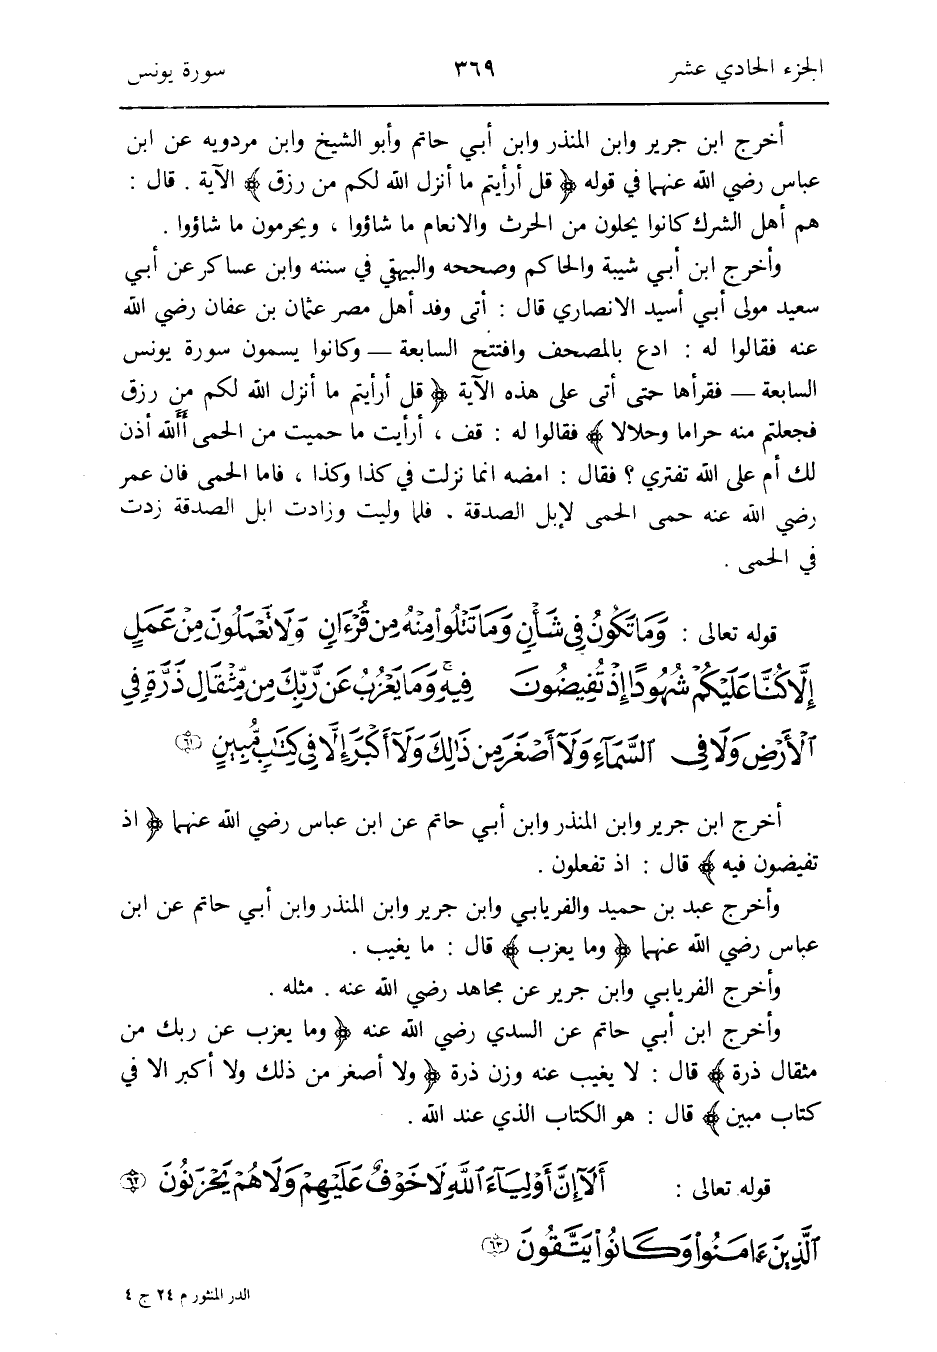 الجزء الحادي عشر ٣٦٩ سورة يونس
أخرج ابن جرير وابن المنذر وابن أبي حاتم وأبو الشيخ وابن مردويه عن ابن
عباس رضي الله عنهما في قوله ﴿ قل أرأيتم ما أنزل الله لكم من رزق ﴾ الآية . قال :
هم أهل الشرك كانوا يحلون من الحرث والانعام ما شاؤوا ، ويحرمون ما شاؤوا .
وأخرج ابن أبي شيبة والحاكم وصححه والبيهقي في سننه وابن عساكر عن أبي
سعيد مولى أبي أسيد الانصاري قال : أتى وفد أهل مصر عثمان بن عفان رضي الله
عنه فقالوا له : ادع بالمصحف وافتتح السابعة — وكانوا يسمون سورة يونس
السابعة — فقرأها حتى أتى على هذه الآية ﴿ قل أرأيتم ما أنزل الله لكم من رزق
فجعلتم منه حراما وحلالا ﴾ فقالوا له : قف ، أرأيت ما حميت من الحمى أألله أذن
لك أم على الله تفتري ؟ فقال : امضه انما نزلت في كذا وكذا ، فاما الحمى فان عمر
رضي الله عنه حمى الحمى لإبل الصدقة . فلما وليت وزادت ابل الصدقة زدت
في الحمى .
قوله تعالى : وَمَا تَكُونُ فِي شَأْنٍ وَمَا تَتْلُوا۟ مِنْهُ مِن قُرْءَانٍ وَلَا تَعْمَلُونَ مِنْ عَمَلٍ
إِلَّا كُنَّا عَلَيْكُمْ شُهُودًا إِذْ تُفِيضُونَ فِيهِ ۚ وَمَا يَعْزُبُ عَن رَّبِّكَ مِن مِّثْقَالِ ذَرَّةٍ فِي
ٱلْأَرْضِ وَلَا فِي ٱلسَّمَآءِ وَلَآ أَصْغَرَ مِن ذَٰلِكَ وَلَآ أَكْبَرَ إِلَّا فِي كِتَٰبٍ مُّبِينٍ ﴿٦١﴾
أخرج ابن جرير وابن المنذر وابن أبي حاتم عن ابن عباس رضي الله عنهما ﴿ اذ
تفيضون فيه ﴾ قال : اذ تفعلون .
وأخرج عبد بن حميد والفريابي وابن جرير وابن المنذر وابن أبي حاتم عن ابن
عباس رضي الله عنهما ﴿ وما يعزب ﴾ قال : ما يغيب .
وأخرج الفريابي وابن جرير عن مجاهد رضي الله عنه . مثله .
وأخرج ابن أبي حاتم عن السدي رضي الله عنه ﴿ وما يعزب عن ربك من
مثقال ذرة ﴾ قال : لا يغيب عنه وزن ذرة ﴿ ولا أصغر من ذلك ولا أكبر الا في
كتاب مبين ﴾ قال : هو الكتاب الذي عند الله .
قوله تعالى : أَلَآ إِنَّ أَوْلِيَآءَ ٱللَّهِ لَا خَوْفٌ عَلَيْهِمْ وَلَا هُمْ يَحْزَنُونَ ﴿٦٢﴾
ٱلَّذِينَ ءَامَنُوا۟ وَكَانُوا۟ يَتَّقُونَ ﴿٦٣﴾
الدر المنثور م ٢٤ ج ٤